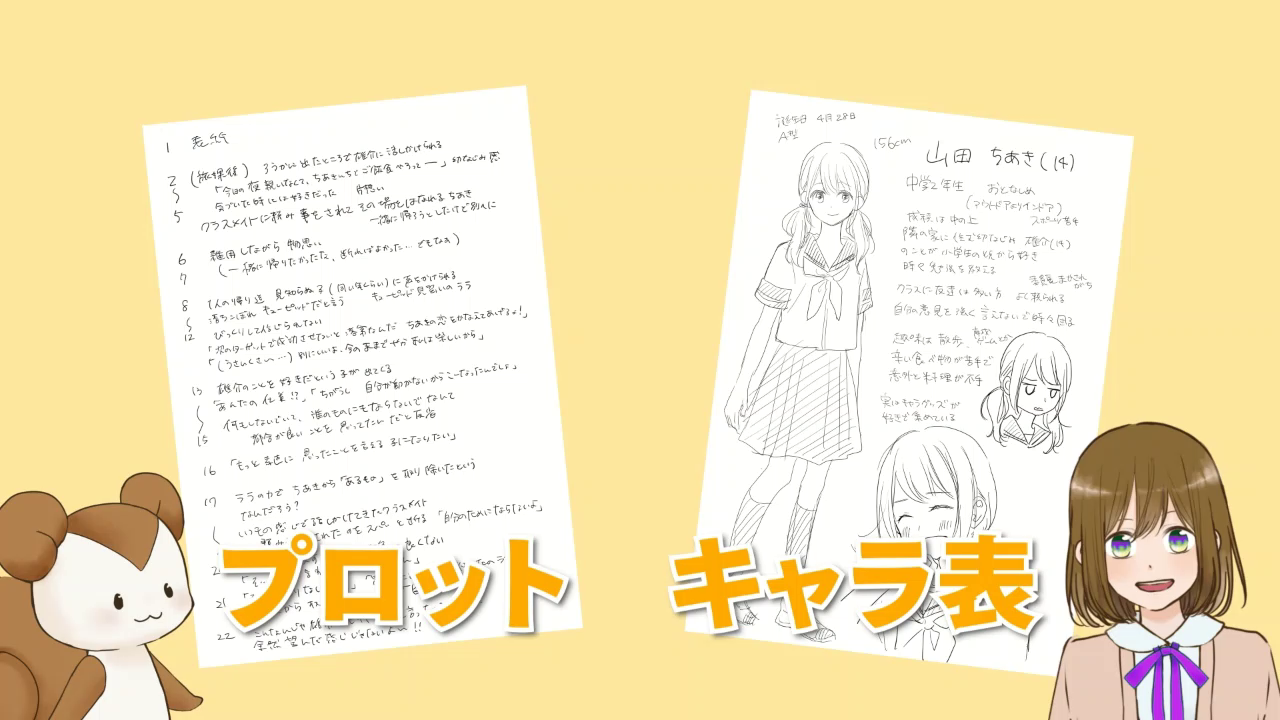 1 表紙
2 (放課後) ろうかに出たところで雄介に話しかけられる
「今日の夜親いなくて、ちあきんちとご飯食べろって―」幼なじみ 思
気づいた時には好きだった 片想い
5 クラスメイトに頼み事をされてその場をはなれるちあき
一緒に帰ろうとしたけど別々に
6 雑用しながら物思い
(一緒に帰りたかったな、断ればよかった… でもなぁ)
7
8 1人の帰り道 見知らぬ子(同い年くらい)に声をかけられる
落ちこぼれキューピッドだと言う キューピッド見習いのララ
12 びっくりして信じられない
「次のターゲットで成功させないと落第なんだ ちあきの恋をかなえてあげるよ!」
「(うさんくさい…) 別にいいよ、今のままでやか 私は楽しいから」
13 雄介のことを好きだという子が出てくる
「あんたの仕業!?」「ちがうし 自分が動かないからこーなったんでしょ」
何もしないでいて、誰のものにもならないでなんて
15 都合が良いことを思ってたんだと反省
16 「もっと素直に思ったことを言える子になりたい」
17 ララの力でちあきから「あるもの」を取り除いたという
なんだろう?
いつもの感じで話しかけてきたクラスメイト
されたのをスパッと断る 「自分のためにならないよ」
22
全然望んだ感じじゃない
プロット
誕生日 4月28日
A型
156cm
山田 ちあき(14)
中学2年生 おとなしめ
(アウトドアよりインドア)
成績は中の上 スポーツ苦手
隣の家に住む幼なじみ 雄介(14)
のことが小学生の頃から好き
時々勉強を教える
委員長まかされがち
クラスに友達は多い方 よく頼られる
自分の意見を強く言えないで時々困る
趣味は散歩、
辛い食べ物が苦手で
意外と料理が下手
実はキャラグッズが
好きで集めている
キャラ表